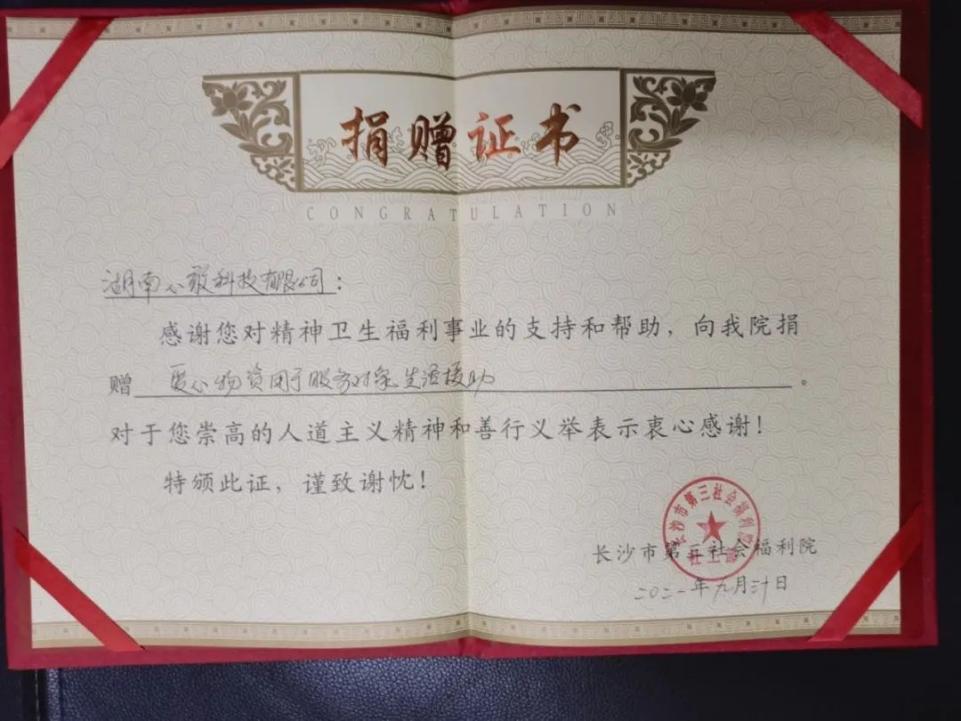 捐赠证书
CONGRATULATION
湖南心敬科技有限公司：
感谢您对精神卫生福利事业的支持和帮助，向我院捐
赠 爱心物资用于服务对象生活援助 。
对于您崇高的人道主义精神和善行义举表示衷心感谢！
特颁此证，谨致谢忱！
长沙市第三社会福利院
长沙市第三社会福利院
二〇二一年九月三十日